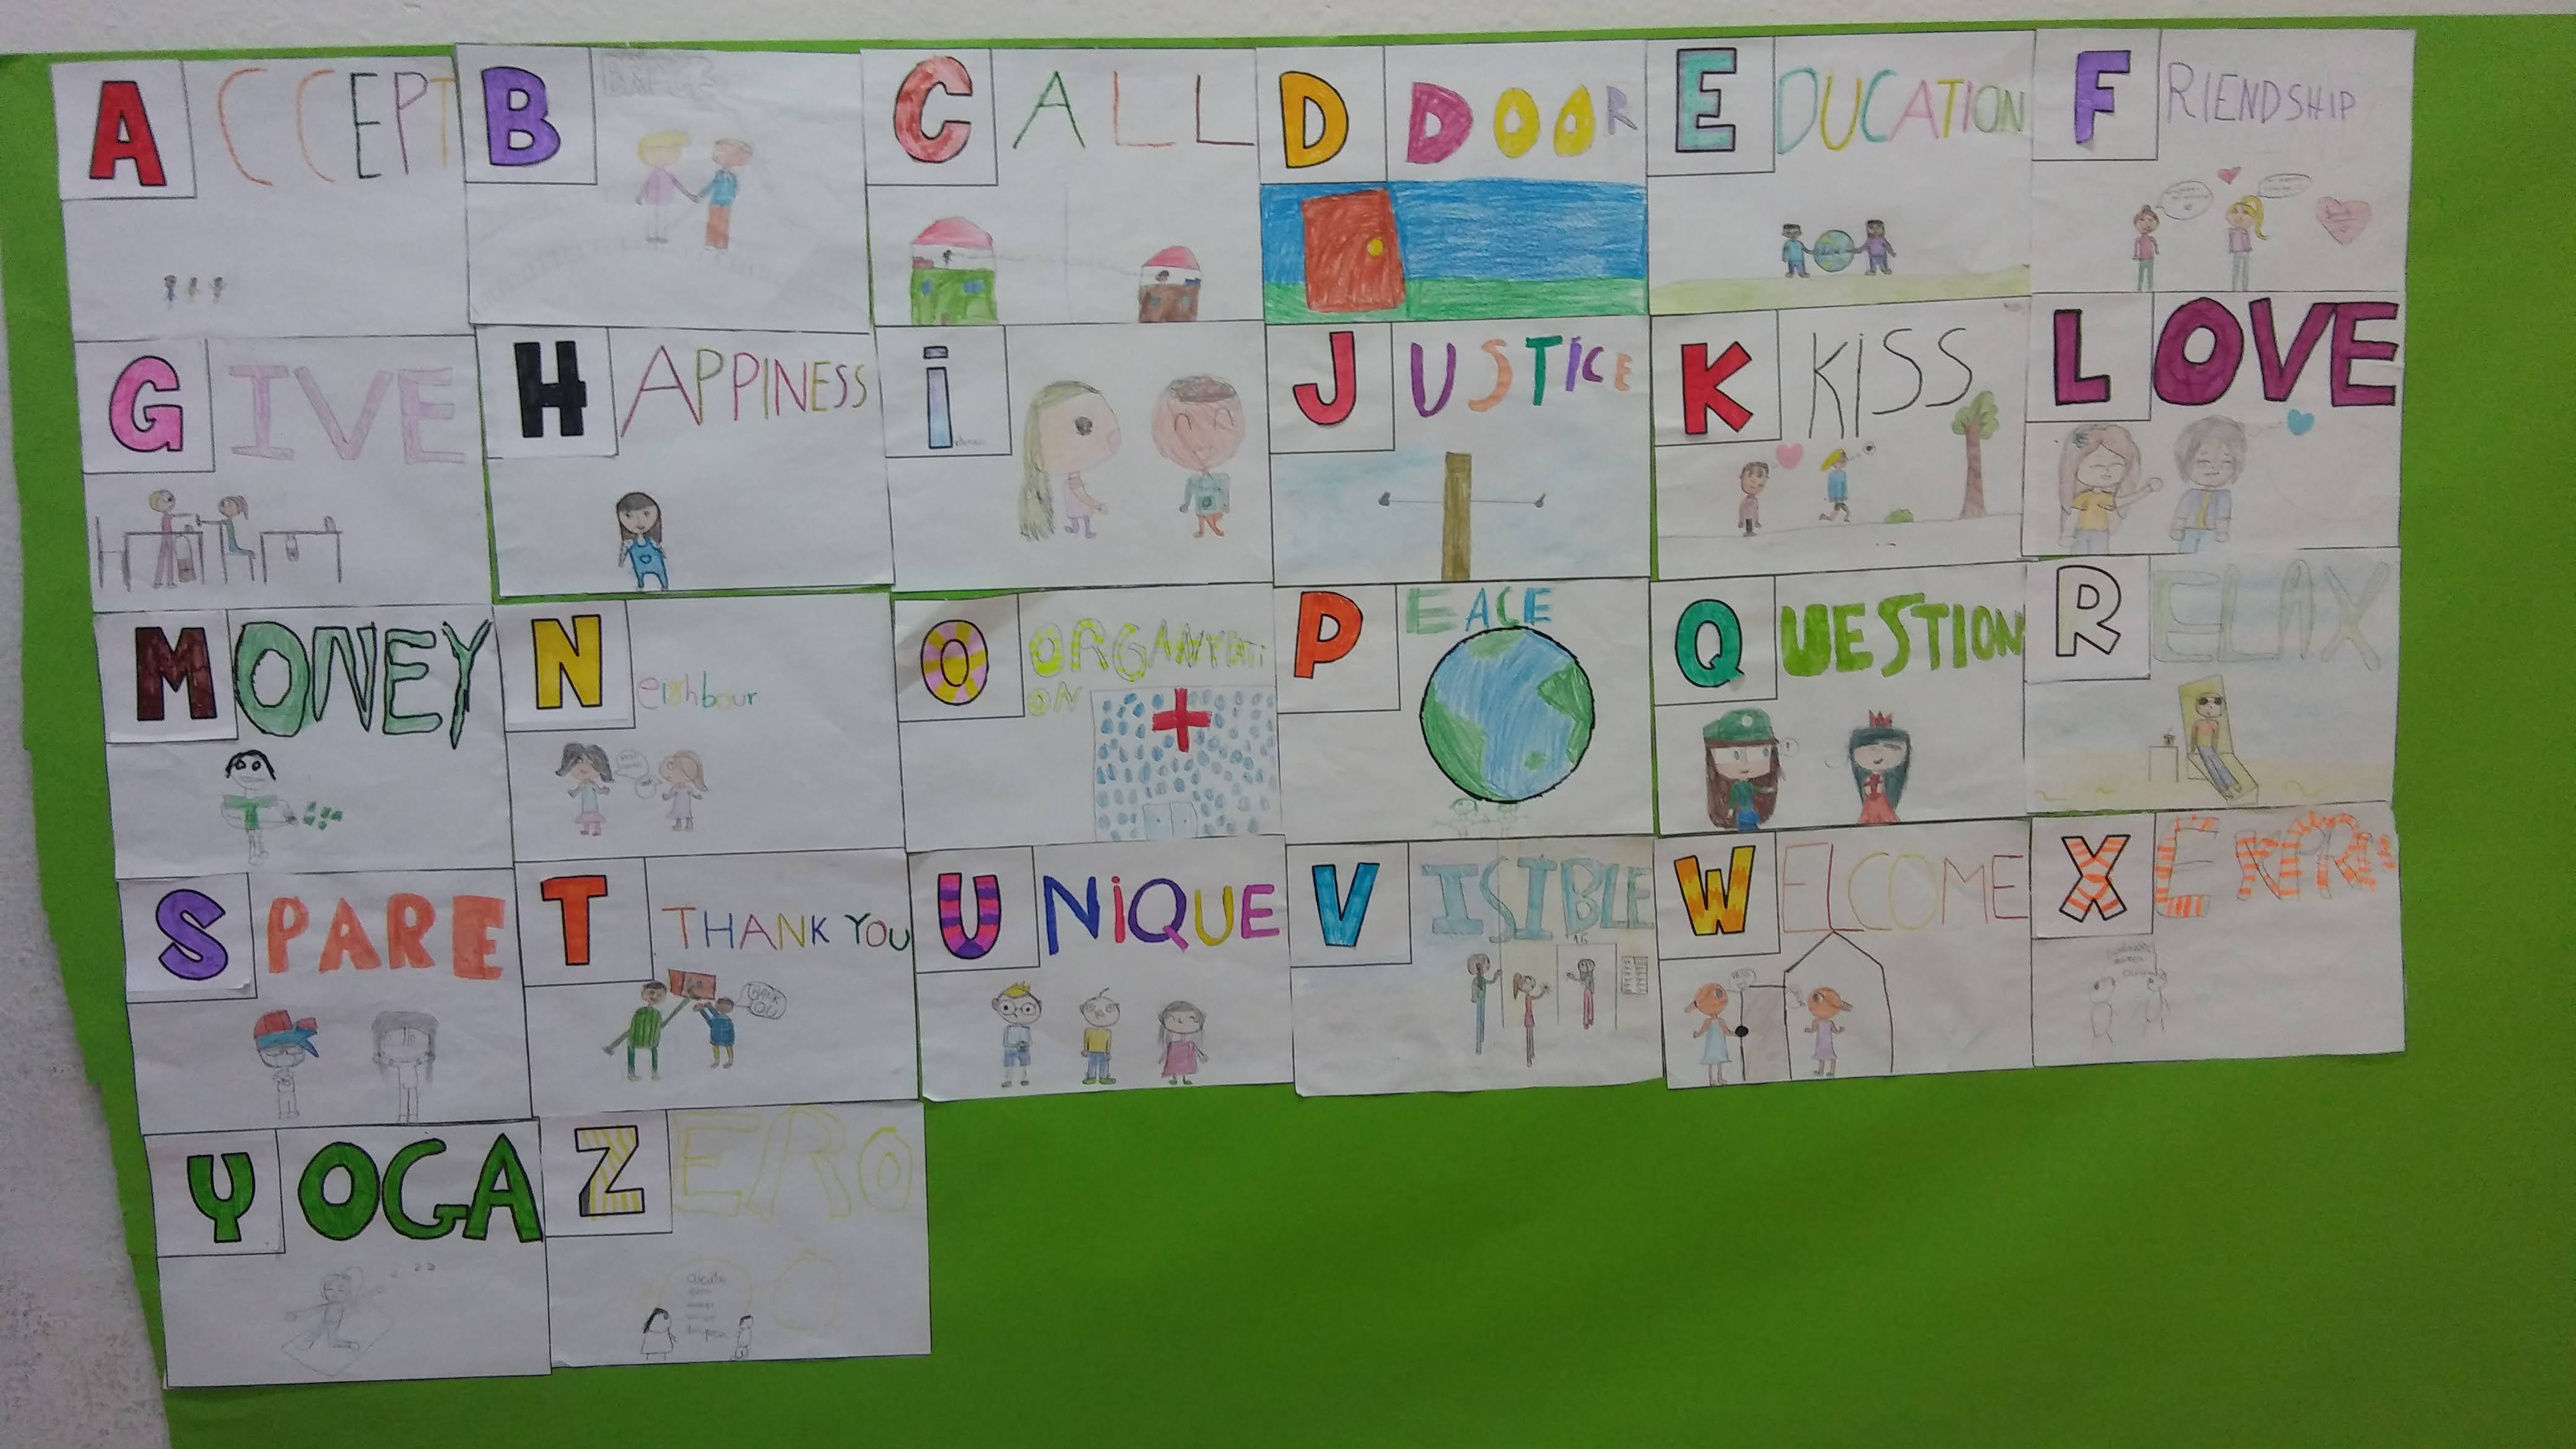 ACCEPT
B
CALL
D DOOR
EDUCATION
FRIENDSHIP
GIVE
HAPPINESS
i
JUSTICE
K KiSS
LOVE
MONEY
Neighbour
O ORGANYZATI
ON
PEACE
QUESTION
RELAX
SPARE
T THANK YOU
THANK
YOU
UNiQUE
VISIBLE
WELCOME
X
YOGA
ZERO